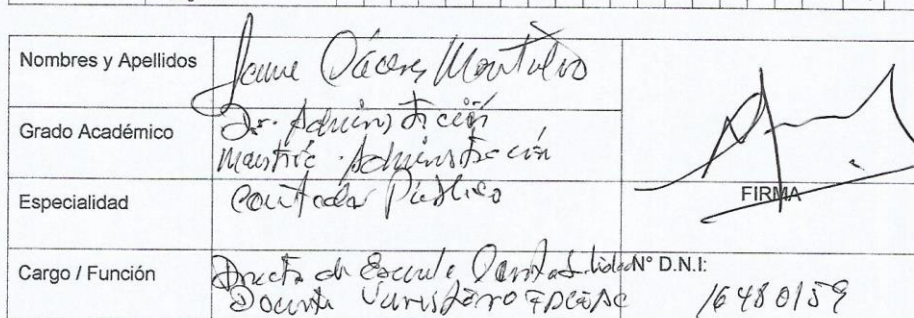 Nombres y Apellidos Jaime Cáceres Montalvo
Grado Académico Dr. Administración
Maestría Administración
Especialidad Contador Público
FIRMA
Cargo / Función Director de Escuela Contabilidad
Docente
N° D.N.I: 16480159